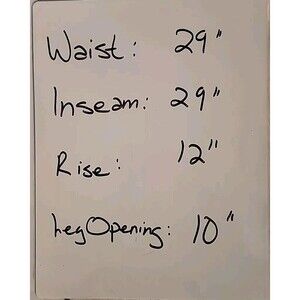 Waist: 29"
Inseam: 29"
Rise: 12"
Leg Opening: 10"